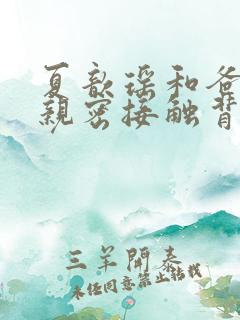 夏歆瑶和爸
亲密接触背
三羊開泰
未经同意禁止转载